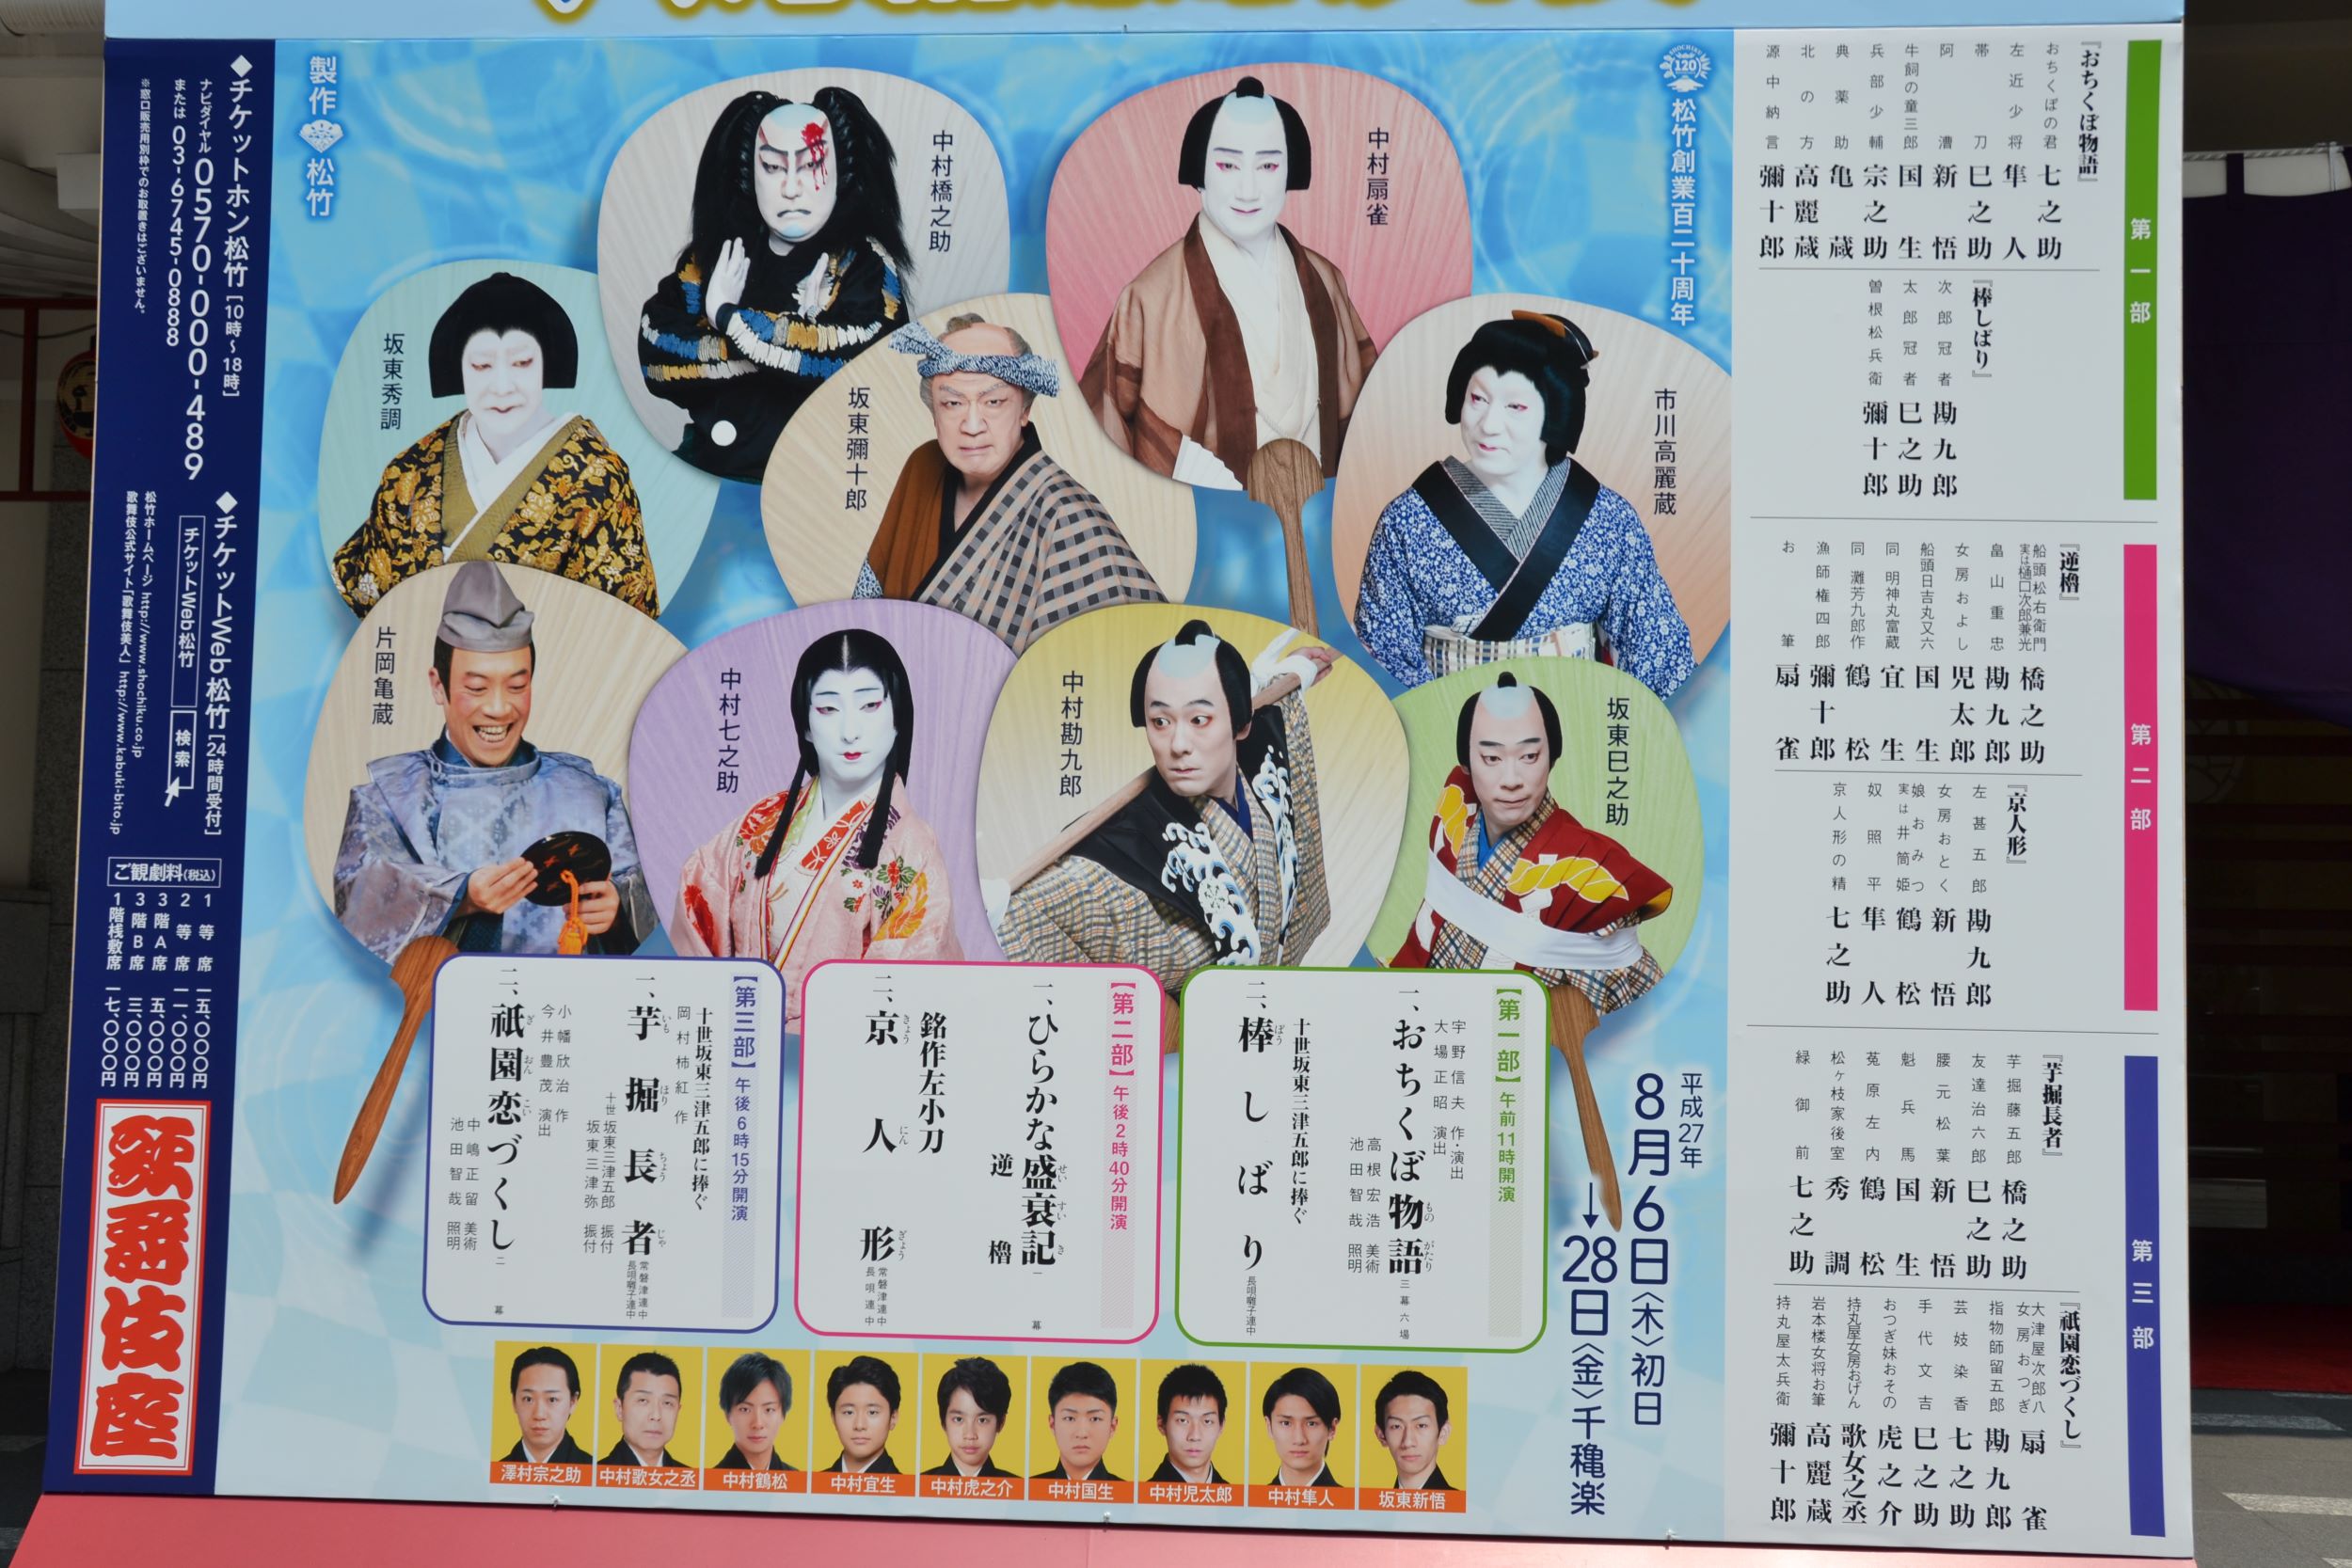 『おちくぼ物語』
第一部
おちくぼの君 七之助
左近少将 隼人
帯刀 巳之助
阿漕 新悟
牛飼の童三郎 国生
兵部少輔 宗之助
典薬助 亀蔵
北の方 高麗蔵
源中納言 彌十郎
『棒しばり』
次郎冠者 勘九郎
太郎冠者 巳之助
曽根松兵衛 彌十郎
第二部
『逆櫓』
船頭松右衛門
実は樋口次郎兼光 橋之助
畠山重忠 勘九郎
女房およし 児太郎
船頭日吉丸又六 国生
同 明神丸富蔵 宜生
同 灘芳九郎作 鶴松
漁師権四郎 彌十郎
お筆 扇雀
『京人形』
左甚五郎 勘九郎
女房おとく 新悟
娘おみつ
実は井筒姫 鶴松
奴照平 隼人
京人形の精 七之助
第三部
『芋掘長者』
芋掘藤五郎 橋之助
友達治六郎 巳之助
腰元松葉 新悟
魁兵馬 国生
菟原左内 鶴松
松ヶ枝家後室 秀調
緑御前 七之助
『祇園恋づくし』
大津屋次郎八
女房おつぎ 扇雀
指物師留五郎 勘九郎
芸妓染香 七之助
手代文吉 巳之助
おつぎ妹おその 虎之介
持丸屋女房おげん 歌女之丞
岩本楼女将お筆 高麗蔵
持丸屋太兵衛 彌十郎
SHOCHIKU 120
松竹創業百二十周年
中村扇雀
中村橋之助
市川高麗蔵
坂東彌十郎
坂東秀調
坂東巳之助
中村勘九郎
中村七之助
片岡亀蔵
製作 松竹
平成27年
8月6日〈木〉初日
→28日〈金〉千穐楽
【第一部】午前11時開演
宇野信夫 作・演出
大場正昭 演出
一、おちくぼ物語 三幕六場
ものがたり
高根宏浩 美術
池田智哉 照明
十世坂東三津五郎に捧ぐ
二、棒しばり 長唄囃子連中
ぼう
【第二部】午後2時40分開演
一、ひらかな盛衰記 一幕
せいすいき
逆櫓
銘作左小刀
二、京人形 常磐津連中
長唄連中
きょうにんぎょう
【第三部】午後6時15分開演
十世坂東三津五郎に捧ぐ
岡村柿紅 作
一、芋掘長者 常磐津連中
長唄囃子連中
いもほりちょうじゃ
十世坂東三津五郎 振付
坂東三津弥 振付
小幡欣治 作
今井豊茂 演出
二、祇園恋づくし 二幕
ぎおんこい
中嶋正留 美術
池田智哉 照明
澤村宗之助
中村歌女之丞
中村鶴松
中村宜生
中村虎之介
中村国生
中村児太郎
中村隼人
坂東新悟
◆チケットホン松竹[10時〜18時]
ナビダイヤル0570-000-489
または 03-6745-0888
※窓口販売用別枠でのお取置きはございません。
◆チケットWeb松竹[24時間受付]
チケットWeb松竹 検索
松竹ホームページ http://www.shochiku.co.jp
歌舞伎公式サイト「歌舞伎美人」http://www.kabuki-bito.jp
ご観劇料(税込)
1等席 一五、〇〇〇円
2等席 一一、〇〇〇円
3階A席 五、〇〇〇円
3階B席 三、〇〇〇円
1階桟敷席 一七、〇〇〇円
歌舞伎座